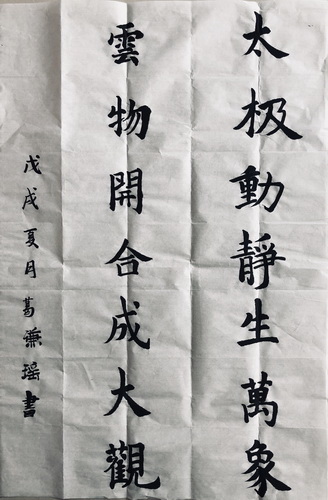 太极動靜生萬象
雲物開合成大觀
戊戌夏月葛謙瑶書